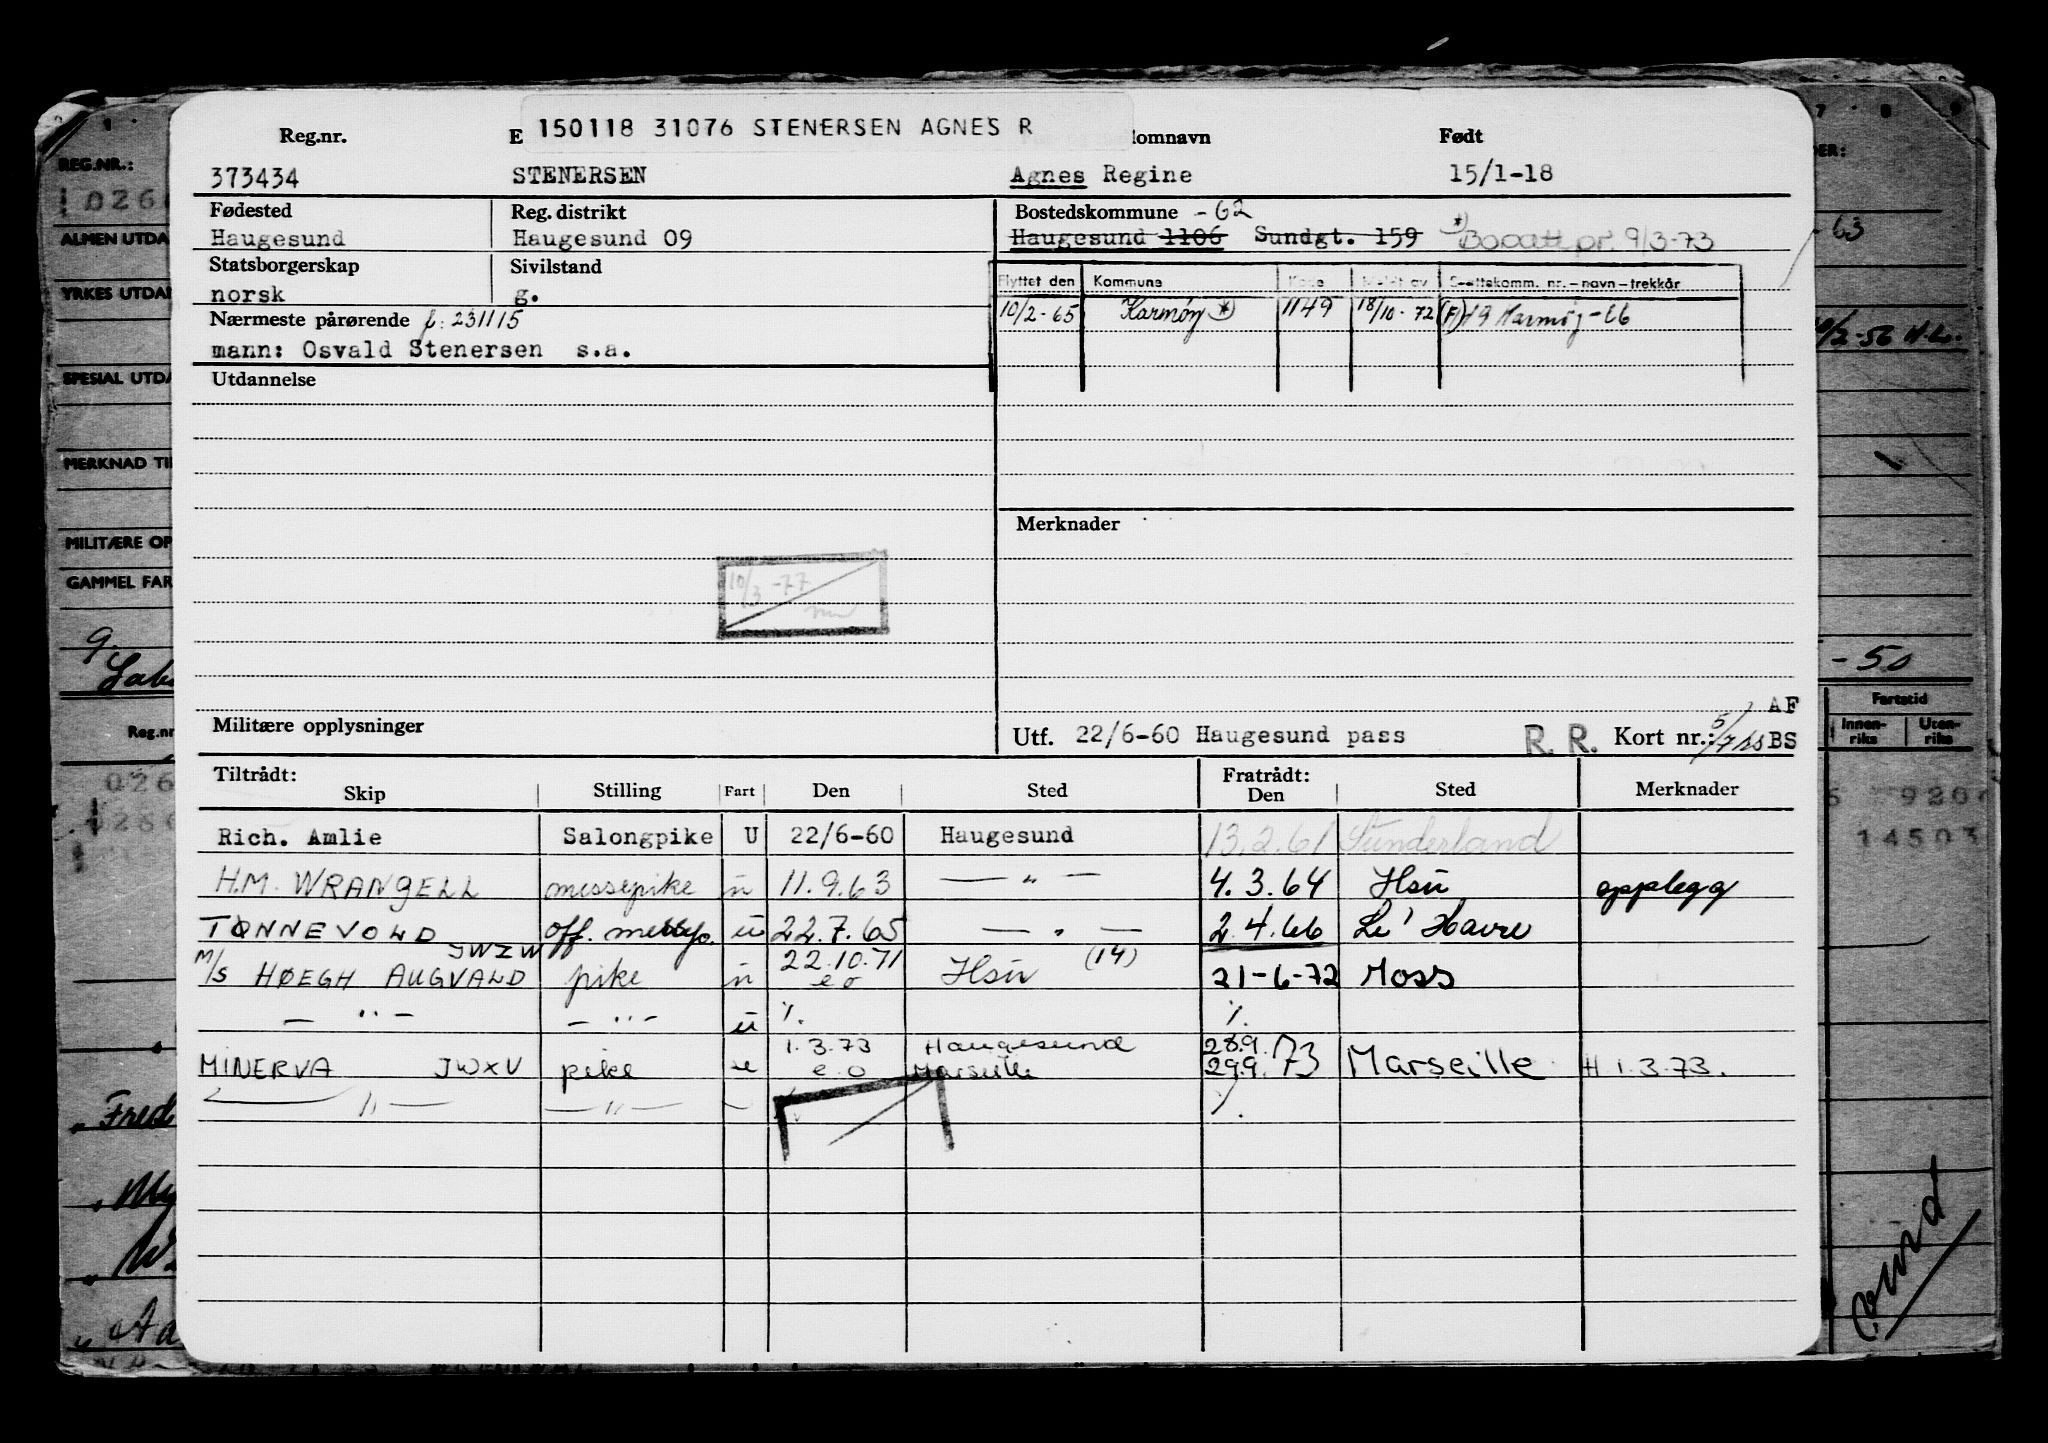 150118 31076 STENERSEN AGNES R
Reg.nr. E lomnavn Født
373434 STENERSEN Agnes Regine 15/1-18
Fødested Reg. distrikt Bostedskommune -62
Haugesund Haugesund 09 Haugesund 1106 Sundgt. 159 *) Bopatt pr. 9/3-73
Statsborgerskap Sivilstand
norsk g.
Flyttet den Kommune Kode Meldt av Skattekomm. nr. - navn - trekkår
10/2-65 Karmøy *) 1149 18/10-72 (F) 49 Karmøy-66
Nærmeste pårørende f: 231115
mann: Osvald Stenersen s.a.
Utdannelse
Merknader
10/3-77
Militære opplysninger
Utf. 22/6-60 Haugesund pass R. R. Kort nr.: AF BS
Tiltrådt: Fratrådt:
Skip Stilling Fart Den Sted Den Sted Merknader
Rich. Amlie Salongpike U 22/6-60 Haugesund 13.2.61 Sunderland
H.M. WRANGELL messepike u 11.9.63 — " — 4.3.64 Hsu opplegg
TØNNEVOLD off. messep. u 22.7.65 — " — 2.4.66 Le' Havre
M/S HØEGH AUGVALD JWZW pike u 22.10.71 e o Hsu (14) 21-6-72 Moss
— " — — " — u %. %.
MINERVA JWXV pike u 1.3.73 e o Haugesund Marseille 28.9. 29.9.73 Marseille H 1.3.73.
— " — — " — — %.
REG.NR.:
ALMEN UTDA
YRKES UTDA
SPESIAL UTDA
MERKNAD TI
MILITÆRE OP
GAMMEL FAR
g.
Reg.nr
7 8 9
DER:
- 63
10/2-56 H.L.
- 50
Fartstid
Innen-riks Uten-riks
9204
14503